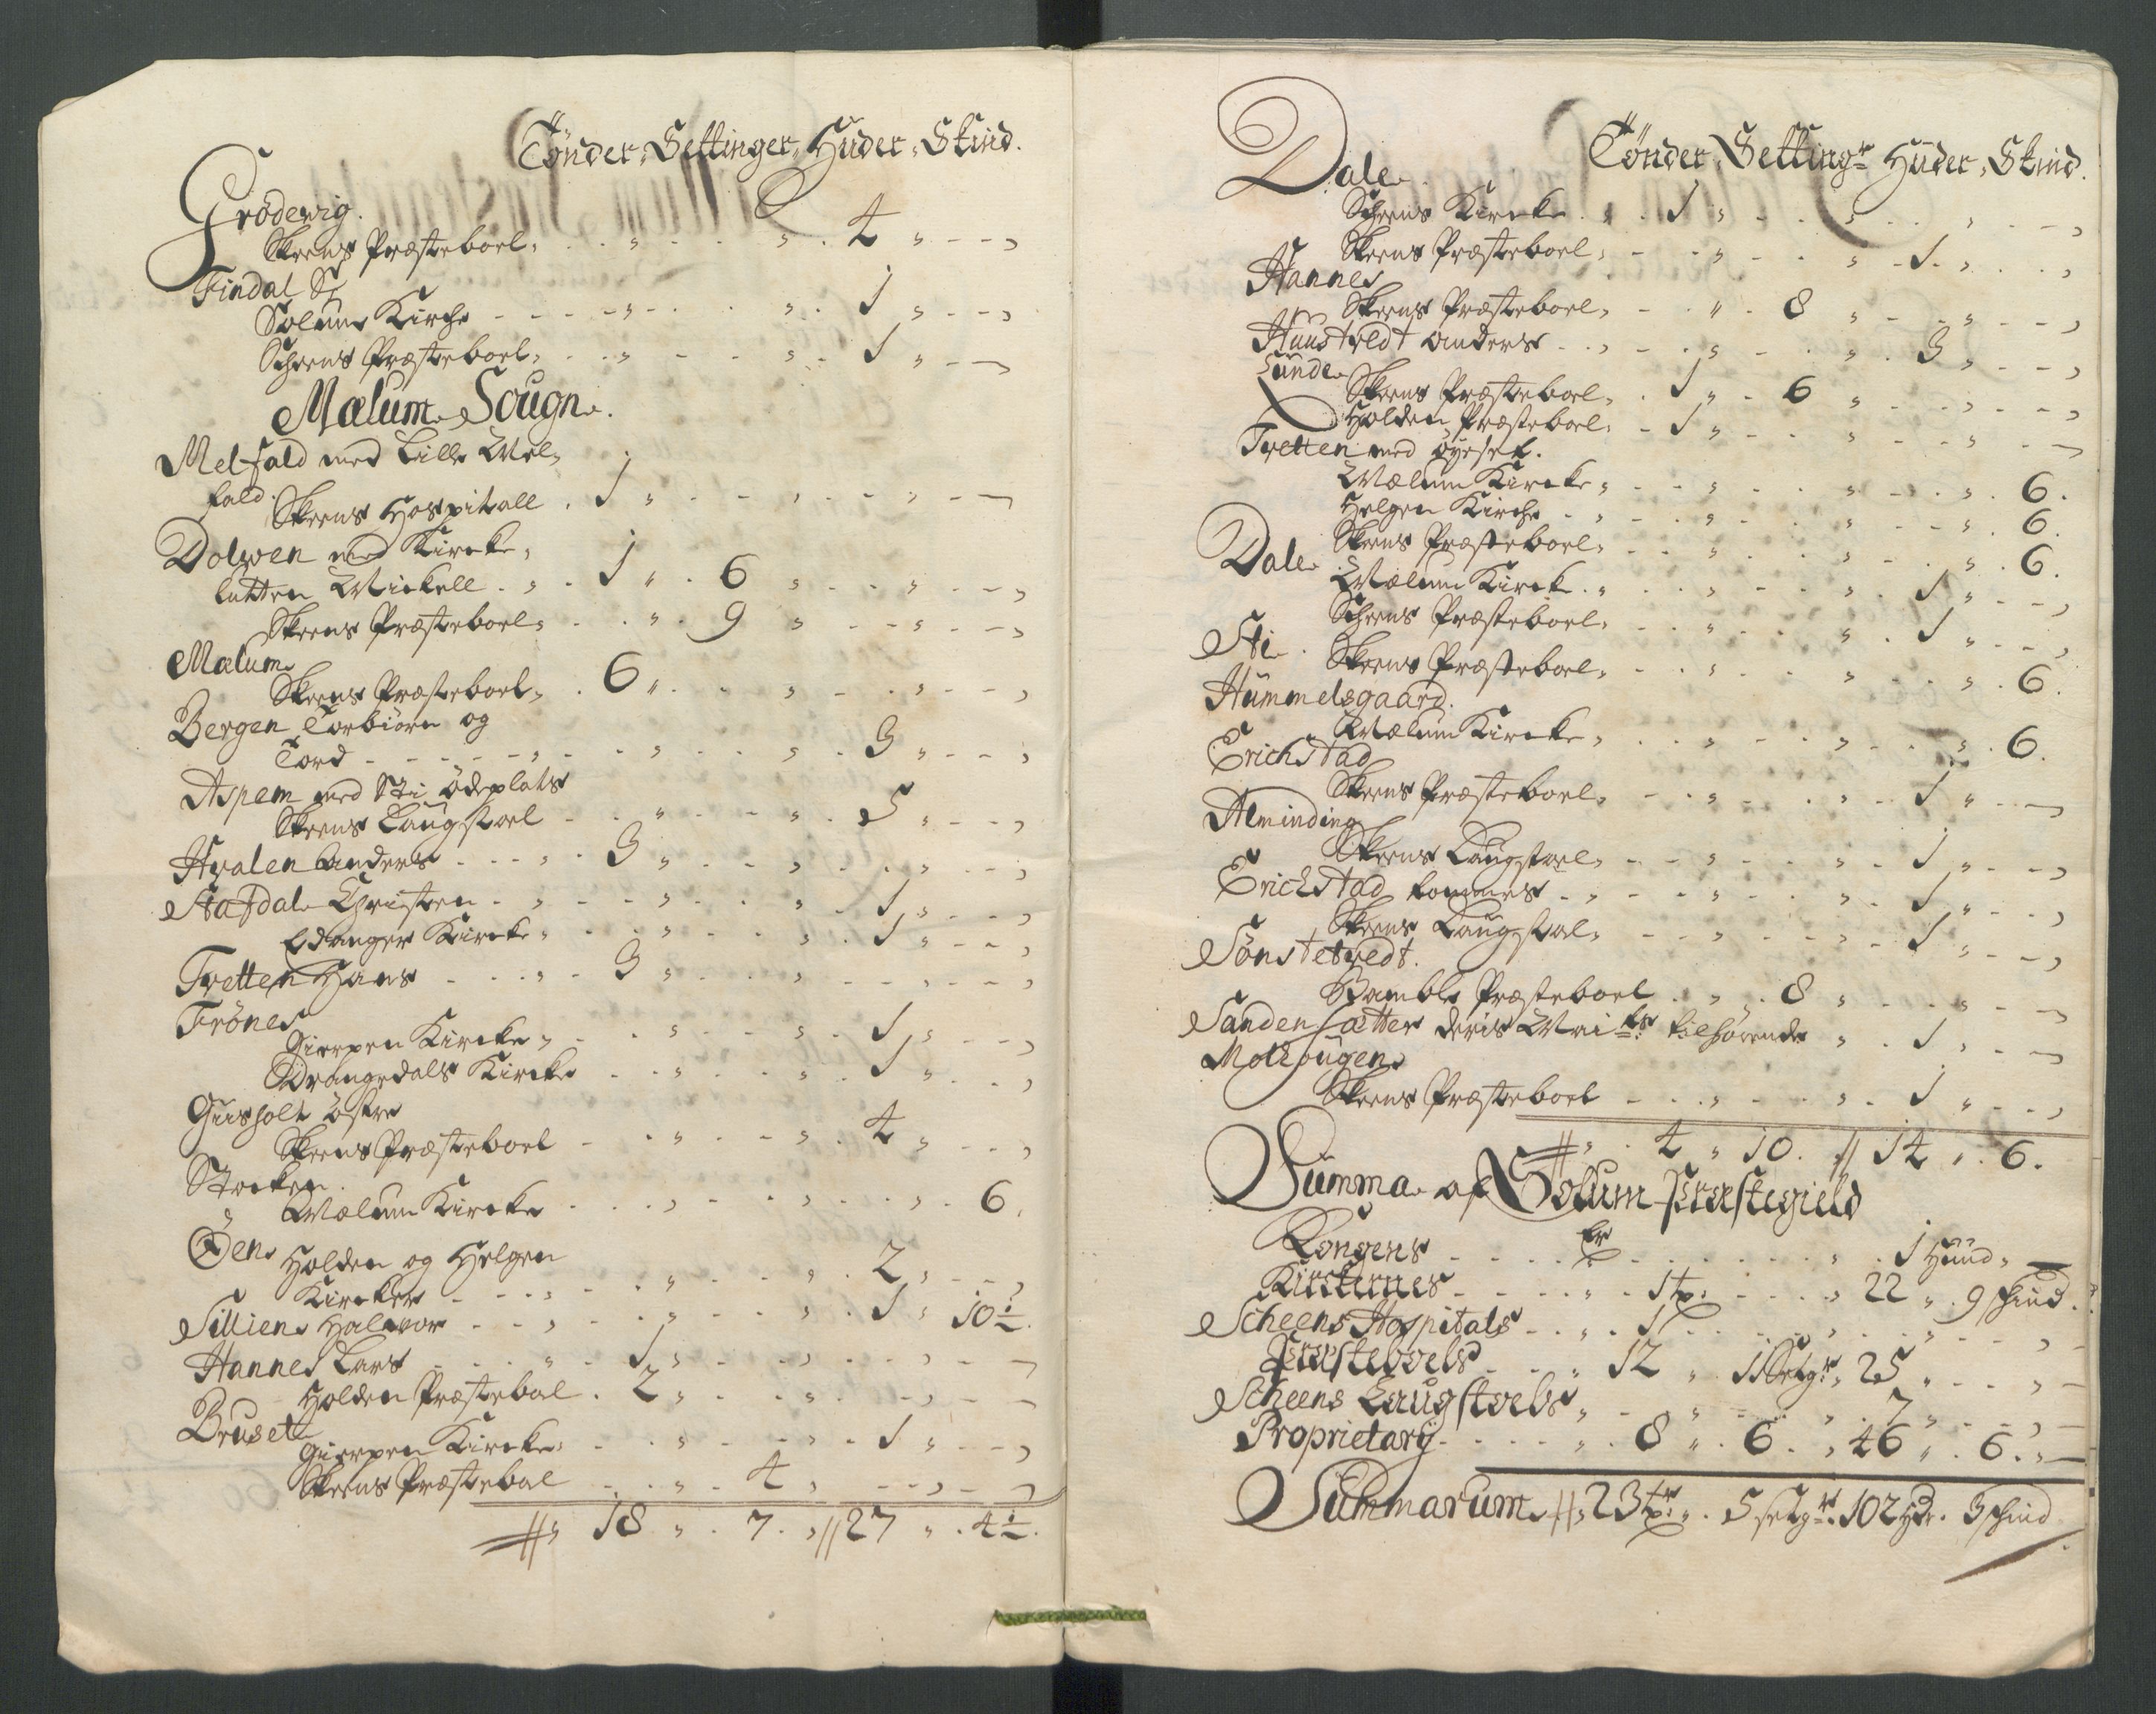 Tönder, Settinger, Huder, Skind.
Gröderig.
Skeens Præsteboel, . . „ . . „ . 4 „ - - ,
Findal
Solum Kirche - - - „ - . . „ . 1 „ - - ,
Scheens Præsteboel, . . „ - - „ . 1 „ - -
Mælum Sougn.
Melfald med Lille Mel-
fald. Skeens Hospitall . 1 „ . - . , . - , - -
Dolwen med Kircke,
lutten Mickell . „ . 1 „ . 6 „ . . „ . - - ,
Skeens Præsteboel, . . „ . 9 „ - - „ - - ,
Mælum
Skeens Præsteboel, . 6 „ . . . „ . - „ - - ,
Bergen Torbiörn og
Tord - - - - „ . - „ . . „ . 3 „ - - ,
Aspem med Sti Ödeplats
Skeens Laugstoel - . „ . - - „ . 5 „ - - ,
Hvalen Anders - - - „ . 3 „ . - - „ . - „ - - ,
Stafdal Christen - „ . - - „ . . „ . 1 „ - - ,
Edanger Kircke, . . . „ . - „ . 1 „ - - ,
Tretten Hans - . . „ . 3 „ . . . „ . - - , - - ,
Frönes
Gierpen Kircke, . . „ - - „ . 1 „ - - ,
Drangedals Kircke . . „ . . „ . 1 „ - - ,
Guisholt Östre
Skeens Præsteboel - . „ . - „ . 4 „ - - ,
Stocken.
Mælum Kircke - . . „ - . „ . . . „ . 6.
Öen Holden og Helgen
Kircker - - - „ . . „ . - . „ . 2 „ - - ,
Sillien Halvor - - „ . . „ . - - „ . 1 „ 10½.
Hannes Lars - - . „ . 1 „ . - . , . . , - -
Holden Præsteboel . 2 „ . . „ . . . , - -
Bruset
Gierpen Kircke, . . „ . - „ - 1 „ - - ,
Skeens Præsteboel . . „ . 4 „ - - , - - ,
„ 18 „ . 7. „ 27 „ . 4½.
Tönder, Settingr Huder, Skind.
Dale.
Scheens Kircke . „ . 1 „ - . . „ . . . „ . - - ,
Skeens Præsteboel, - - „ - . „ - 1 . „ . . ,
Hannes
Skeens Præsteboel, - . „ . 8 „ - - „ - - ,
Huustvedt Anders . „ - . „ - . „ . 3 „ - - ,
Lunde
Skeens Præsteboel, . 1 „ . 6 „ - . , - - ,
Holden Præsteboel, . 1 „ - - . „ - - „ . - -
Tvetten med öyeset.
Mælum Kircke, - - „ - - „ - . „ . 6.
Helgen Kirche - „ - . „ - . „ - - „ . 6.
Skeens Præsteboel, - - „ . - - „ . „ . 6.
Dale
Mælum Kirck . „ . . „ - - „ . 1 „ - - ,
Scheens Præsteboel, - . „ . - „ . 1 „ - - ,
Sti
Skeens Præsteboel, - . . „ . - „ . - „ . 6.
Hummelsgaard.
Mælum Kircke, . . „ . - . „ . . „ . 6.
Erichstad
Skeens Præsteboel, - . „ - . . „ - 1 „ . - -
Alminding
Skeens Laugstoel, - - „ . - - „ - 1 „ . - ,
Erichstad - „ - - „ - . „ . 1 „ - - ,
Skeens Laugstoel, - - „ . - . „ - 1 „ - - ,
Sönstetvedt.
Bamble Præsteboel . „ . 8 „ . . . „ - -
Sanden tilhörende „ . 1 „ . - -
Mollougen
Skeens Præsteboel - . . „ . - . „ - 1 „ - - ,
„ . 4 „ 10. 14 „ . 6.
Summa af Solum Præstegield
Kongens - - - - - - - - - „ . 1 Huud, -
Kirckernes - - - „ . 1 tr. - - - „ 22 „ . 9 schind.
Scheens Hospitals - - „ . 1 . . . „ . . „ - - ,
Præsteboels - - „ 12 „ 11 Setgr. „ 25 „ . . „ -
Scheens Laugstoels „ . - - „ - . „ . 7 „ . . , -
Proprietary - - - - „ . 8 „ . 6. „ 46 „ . 6. „
Summarum 23 tr. „ . 5 setgr. 102 hdr. 3 schind